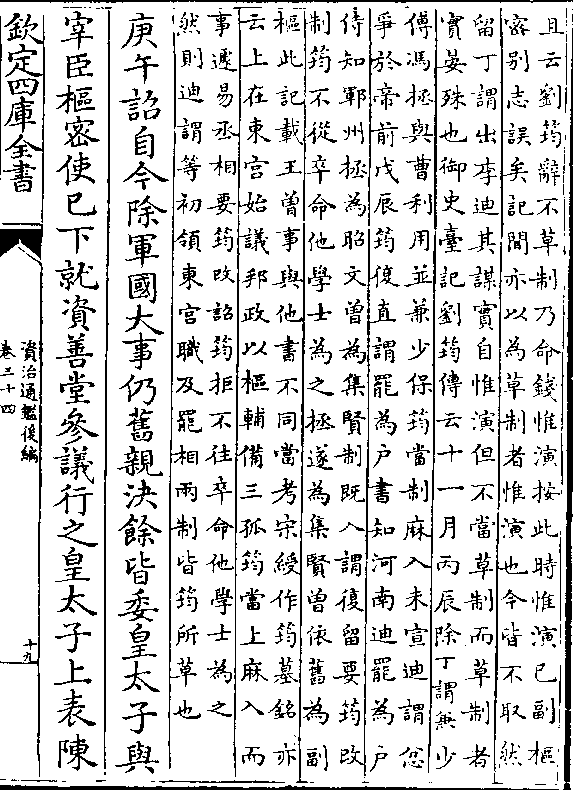 且云劉筠辭不草制乃命錢惟演按此時惟演已副樞
密别志誤矣記聞亦以為草制者惟演也今皆不取然
留丁謂出李迪其謀實自惟演但不當草制而草制者
實晏殊也御史臺記劉筠傳云十一月丙辰除丁謂兼少
傅馮拯與曹利用並兼少保筠當制麻入未宣迪謂忿
爭於帝前戊辰筠復直謂罷為户書知河南迪罷為户
侍知鄆州拯為昭文曾為集賢制既入謂復留要筠改
制筠不從卒命他學士為之拯遂為集賢曾依舊為副
樞此記載王曾事與他書不同當考宋綬作筠墓銘亦
云上在東宫始議邦政以樞輔備三孤筠當上麻入而
事遽易丞相要筠改詔筠拒不往卒命他學士為之
然則迪謂等初領東宫職及罷相兩制皆筠所草也
庚午詔自今除軍國大事仍舊親決餘皆委皇太子與
宰臣樞密使已下就資善堂參議行之皇太子上表陳
欽定四庫全書
資治通鑑後編
卷三十四
十九